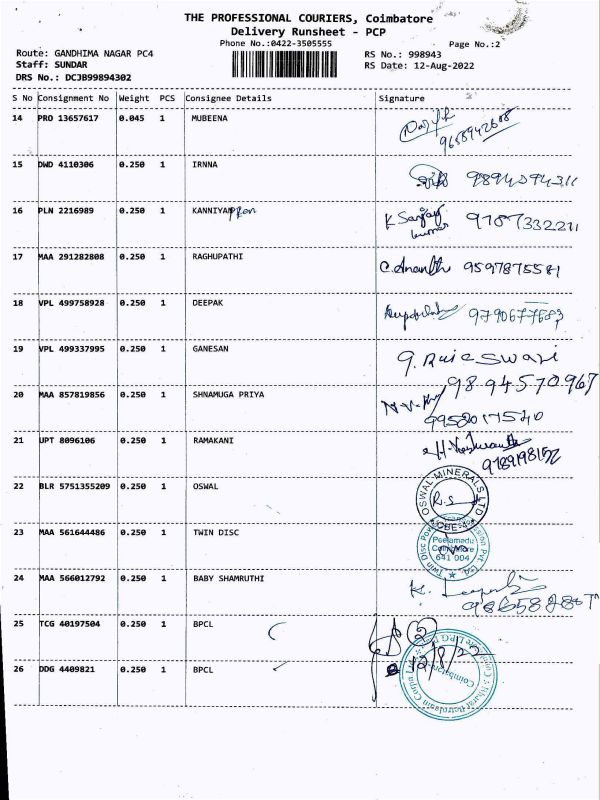 THE PROFESSIONAL COURIERS, Coimbatore
Delivery Runsheet - PCP
Phone No.:0422-3505555
Page No.:2
Route: GANDHIMA NAGAR PC4
RS No.: 998943
Staff: SUNDAR
RS Date: 12-Aug-2022
DRS No.: DCJB99894302
S No Consignment No Weight PCS Consignee Details Signature
14 PRO 13657617 0.045 1 MUBEENA
9658942608
15 DWD 4110306 0.250 1 IRNNA
16 PLN 2216989 0.250 1 KANNIYAPPRON K Sanjay 9787332211
kumar
17 MAA 291282808 0.250 1 RAGHUPATHI C.Ananth 9597875581
18 VPL 499758928 0.250 1 DEEPAK 9790677583
19 VPL 499337995 0.250 1 GANESAN G. Rajeswari
9894570967
20 MAA 857819856 0.250 1 SHNAMUGA PRIYA
9958017540
21 UPT 8096106 0.250 1 RAMAKANI
9789198152
22 BLR 5751355209 0.250 1 OSWAL OSWAL MINERALS LTD
CBE-4
23 MAA 561644486 0.250 1 TWIN DISC
Peelamedu
Coimbatore
641 004
24 MAA 566012792 0.250 1 BABY SHAMRUTHI
25 TCG 40197504 0.250 1 BPCL
12/8/22
26 DDG 4409821 0.250 1 BPCL
Coimbatore